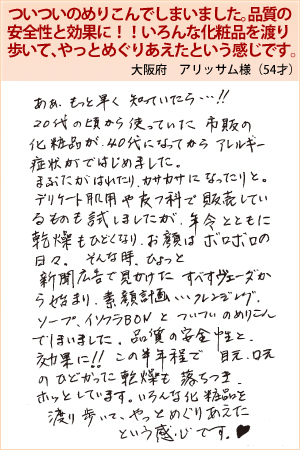 ついついのめりこんでしまいました。品質の
安全性と効果に！！いろんな化粧品を渡り
歩いて、やっとめぐりあえたという感じです。
大阪府　アリッサム様（54才）
あぁ、もっと早く知っていたら…!!
20代の頃から使っていた市販の
化粧品が、40代になってからアレルギー
症状がではじめました。
まぶたがはれたり、カサカサになったりと。
デリケート肌用や皮フ科で販売して
いるものも試しましたが、年令とともに
乾燥もひどくなり、お顔はボロボロの
日々。そんな時、ひょっと
新聞広告で見かけたすべすべヴェーダか
ら始まり、素顔計画…クレンジング、
ソープ、イソフラBONとついついのめりこん
でしまいました。品質の安全性と、
効果に!!この半年程で目元、口元
のひどかった乾燥も落ちつき、
ホッとしています。いろんな化粧品を
渡り歩いて、やっとめぐりあえた
という感じです。♥